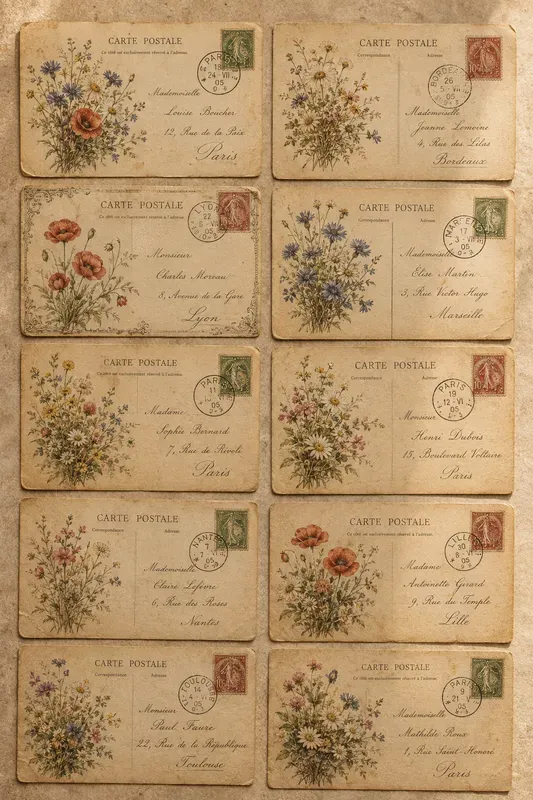 CARTE POSTALE
Ce côté est exclusivement réservé à l'adresse.
PARIS
18
24 - VII
05
Mademoiselle
Louise Boucher
12, Rue de la Paix
Paris
CARTE POSTALE
Correspondance Adresse
BORDE
26
5 - VII
05
Mademoiselle
Jeanne Lemoine
4, Rue des Lilas
Bordeaux
CARTE POSTALE
Ce côté est exclusivement réservé à l'adresse.
LYON
22
05
Monsieur
Charles Moreau
8, Avenue de la Gare
Lyon
CARTE POSTALE
Correspondance Adresse
MARSEI
17
3 - VII
05
Mademoiselle
Elise Martin
5, Rue Victor Hugo
Marseille
CARTE POSTALE
Ce côté est exclusivement réservé à l'adresse.
PARIS
11
05
Madame
Sophie Bernard
7, Rue de Rivoli
Paris
CARTE POSTALE
Correspondance Adresse
PARIS
19
12 - VI
05
Monsieur
Henri Dubois
15, Boulevard Voltaire
Paris
CARTE POSTALE
Correspondance Adresse
NANTES
7
05
Mademoiselle
Claire Lefevre
6, Rue des Roses
Nantes
CARTE POSTALE
Ce côté est exclusivement réservé à l'adresse.
LILLE
30
05
Madame
Antoinette Girard
9, Rue du Temple
Lille
CARTE POSTALE
Correspondance Adresse
TOULOUSE
14
05
Monsieur
Paul Faure
22, Rue de la République
Toulouse
CARTE POSTALE
Ce côté est exclusivement réservé à l'adresse.
PARIS
9
21
05
Mademoiselle
Mathilde Roux
1, Rue Saint-Honoré
Paris